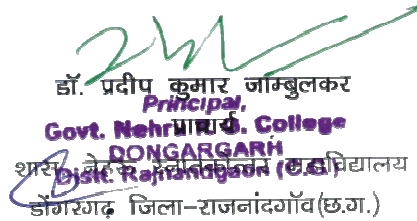 डॉ. प्रदीप कुमार जाम्बुलकर
Principal,
प्राचार्य
Govt. Nehru College
DONGARGARH
शास. नेहरू स्नातकोत्तर महाविद्यालय
Distt. Rajnandgaon (C.G.)
डोंगरगढ़ जिला-राजनांदगॉव(छ.ग.)